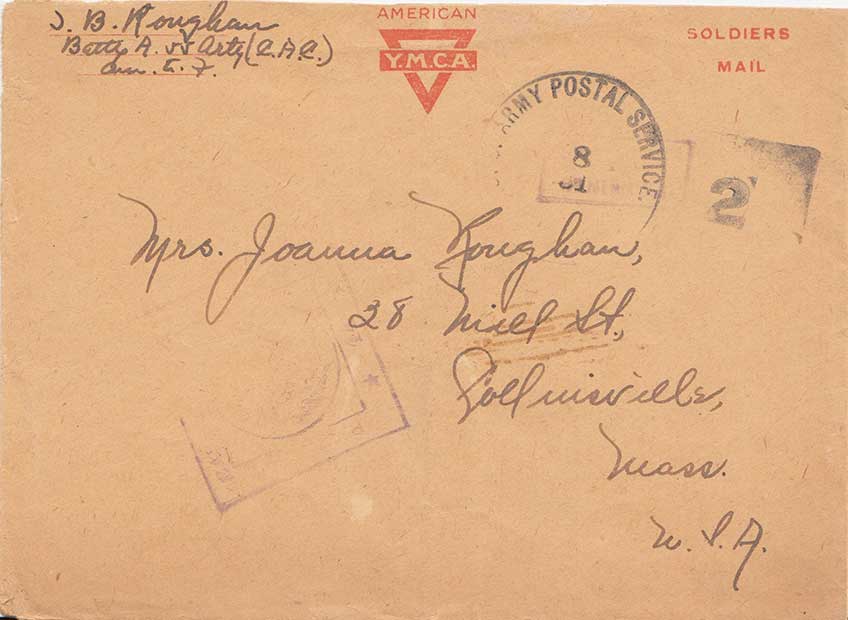 J. B. Roughan
Batty A. 55 Arty (C.A.C.)
Am. E. F.
AMERICAN
Y.M.C.A.
SOLDIERS
MAIL
ARMY POSTAL SERVICE
8
2
Mrs. Joanna Roughan,
28 Mill St.,
Collinsville,
Mass.
U.S.A.